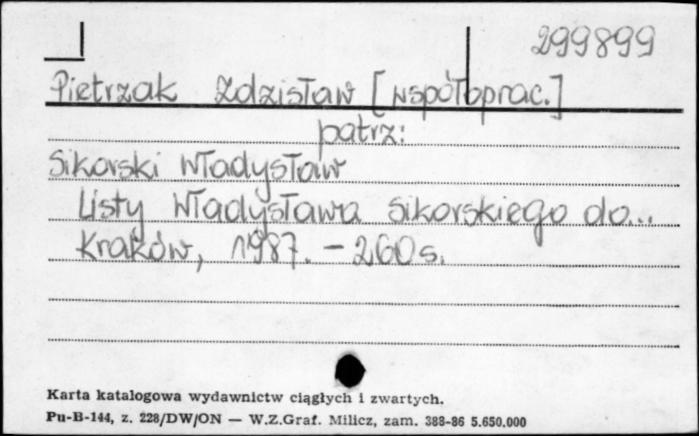 299899
Pietrzak Zdzisław [współoprac.]
patrz:
Sikorski Władysław
Listy Władysława Sikorskiego do...
Kraków, 1987. – 260 s.
Karta katalogowa wydawnictw ciągłych i zwartych.
Pu-B-144, z. 228/DW/ON — W.Z.Graf. Milicz, zam. 388-86 5.650.000